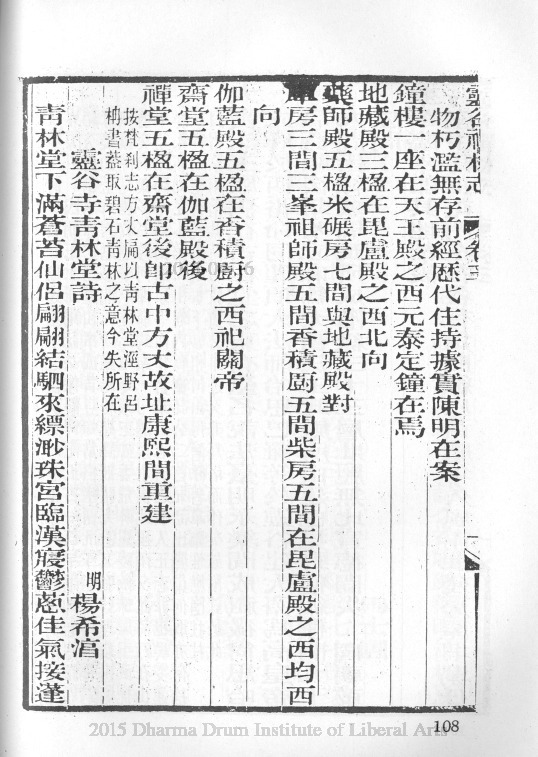 靈谷禪林志 卷三
物朽濫無存前經歷代住持據實陳明在案
鐘樓一座在天王殿之西元泰定鐘在焉
地藏殿三楹在毘盧殿之西北向
藥師殿五楹米碾房七間與地藏殿對
房三間二峯祖師殿五間香積廚五間柴房五間在毘盧殿之西均西
向
伽藍殿五楹在香積廚之西祀關帝
齋堂五楹在伽藍殿後
禪堂五楹在齋堂後卽古中方丈故址康熙間重建
按梵刹志方丈扁以靑林堂涇野呂
柟書葢取碧石靑林之意今失所在
靈谷寺靑林堂詩 明 楊希
靑林堂下滿蒼苔仙侶翩翩結駟來縹渺珠宮臨漢寢鬱蔥佳氣接蓬
108
2015 Dharma Drum Institute of Liberal Arts